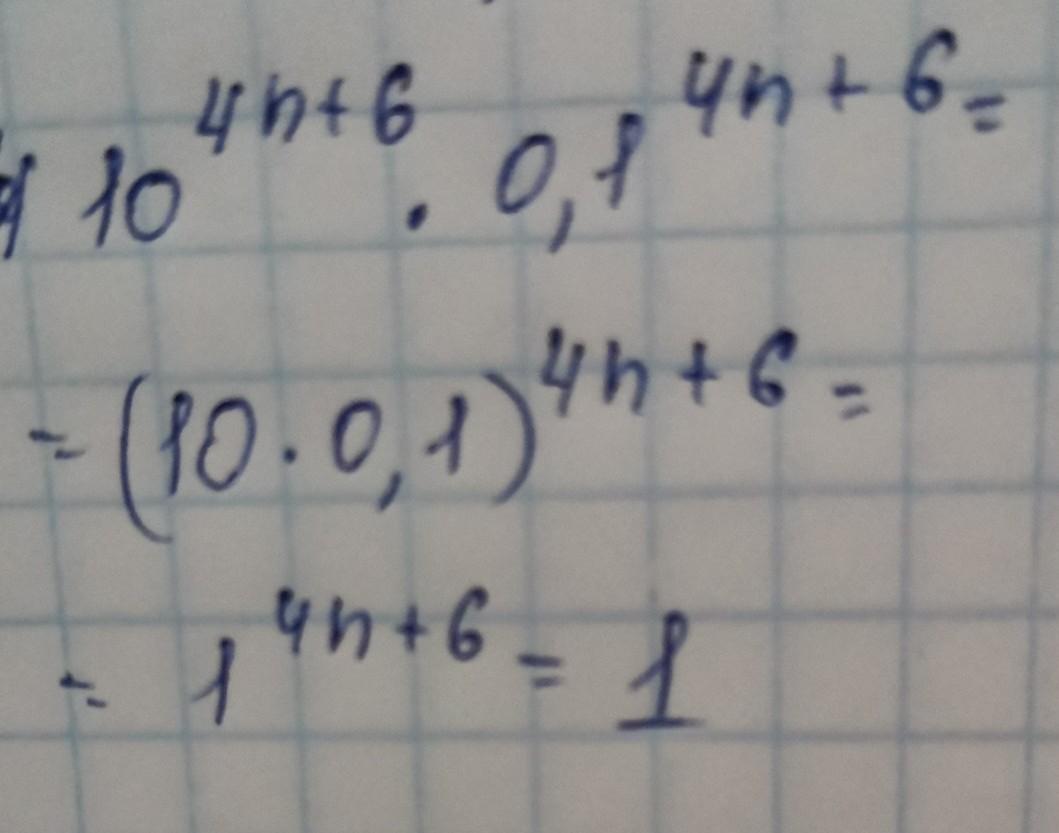 10^{4n+6} · 0,1^{4n+6} =
= (10 · 0,1)^{4n+6} =
= 1^{4n+6} = 1